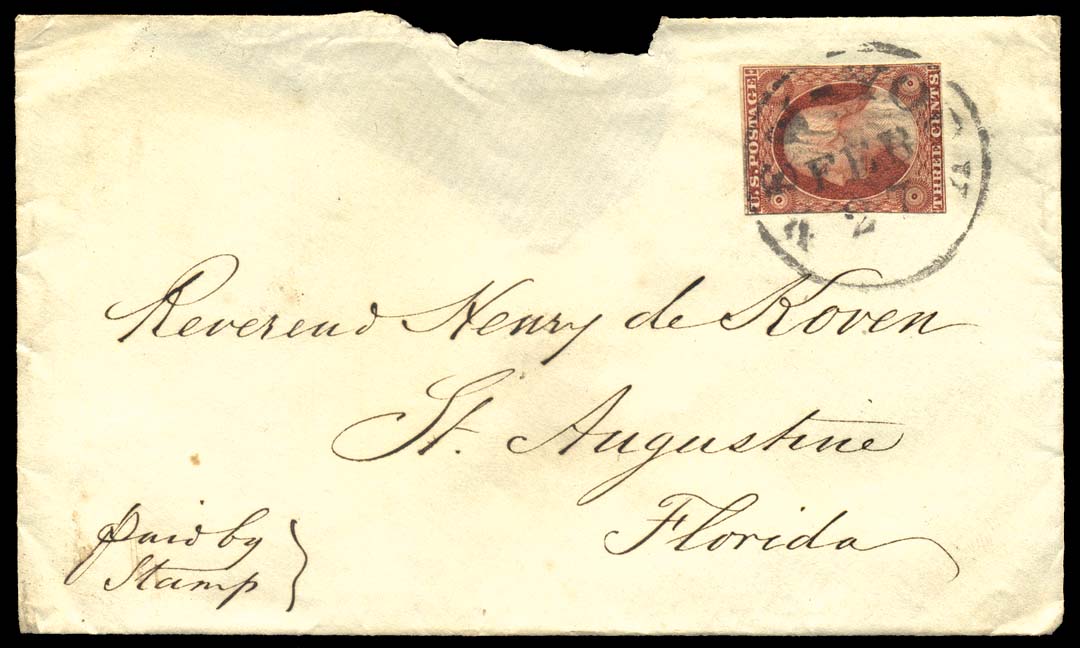 U.S. POSTAGE
THREE CENTS
FEB
Reverend Henry de Koven
St. Augustine
Florida
Paid by
Stamp